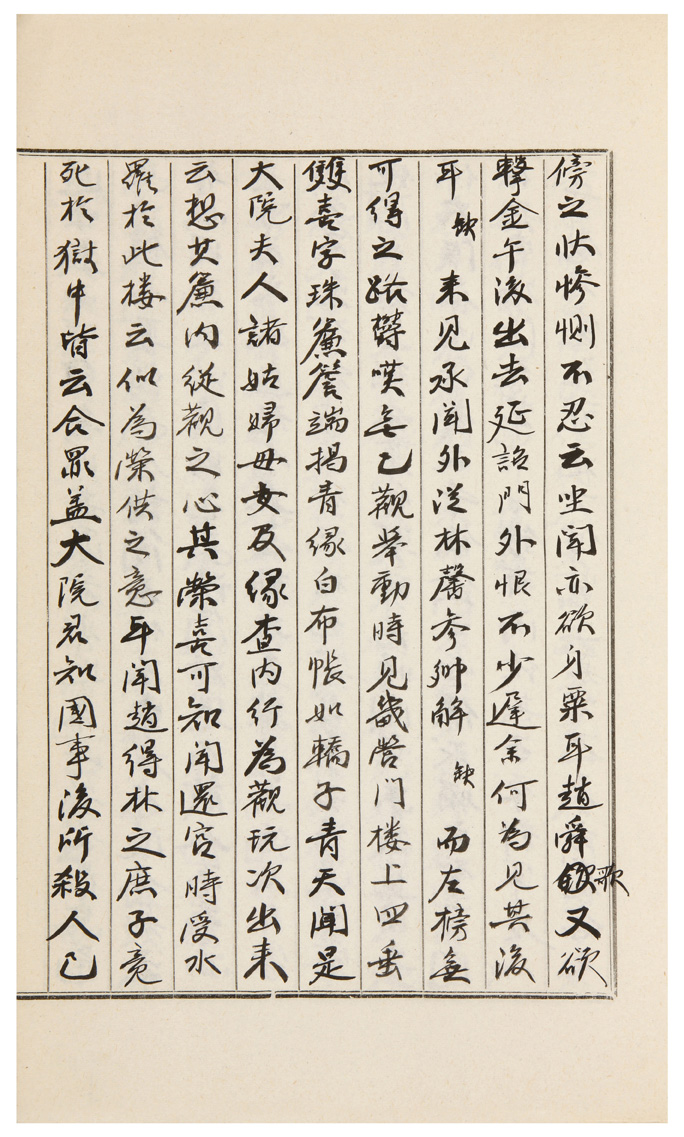 傍之怢慘惻不忍云坐闻亦欲身粟耳趙舜歌又欲
擊金午後出去延詔門外恨不少遲余何為見其後
耳 缺 来见承闻外従林馨参卿解 缺 而左榜無
可得之路欝嘆無已觀举動時见畿营门楼上四垂
雙喜字珠簾簷端揭青缘白布帳如轎子青天闻是
大院夫人諸姑婦母女及缘查内行為觀玩次出来
云想其簾内縦觀之心其榮喜可知闻還宮時受水
羅於此楼云似為榮供之意耳闻趙得林之庶子竟
死於獄中皆云合罪盖大院君知國事後所殺人已